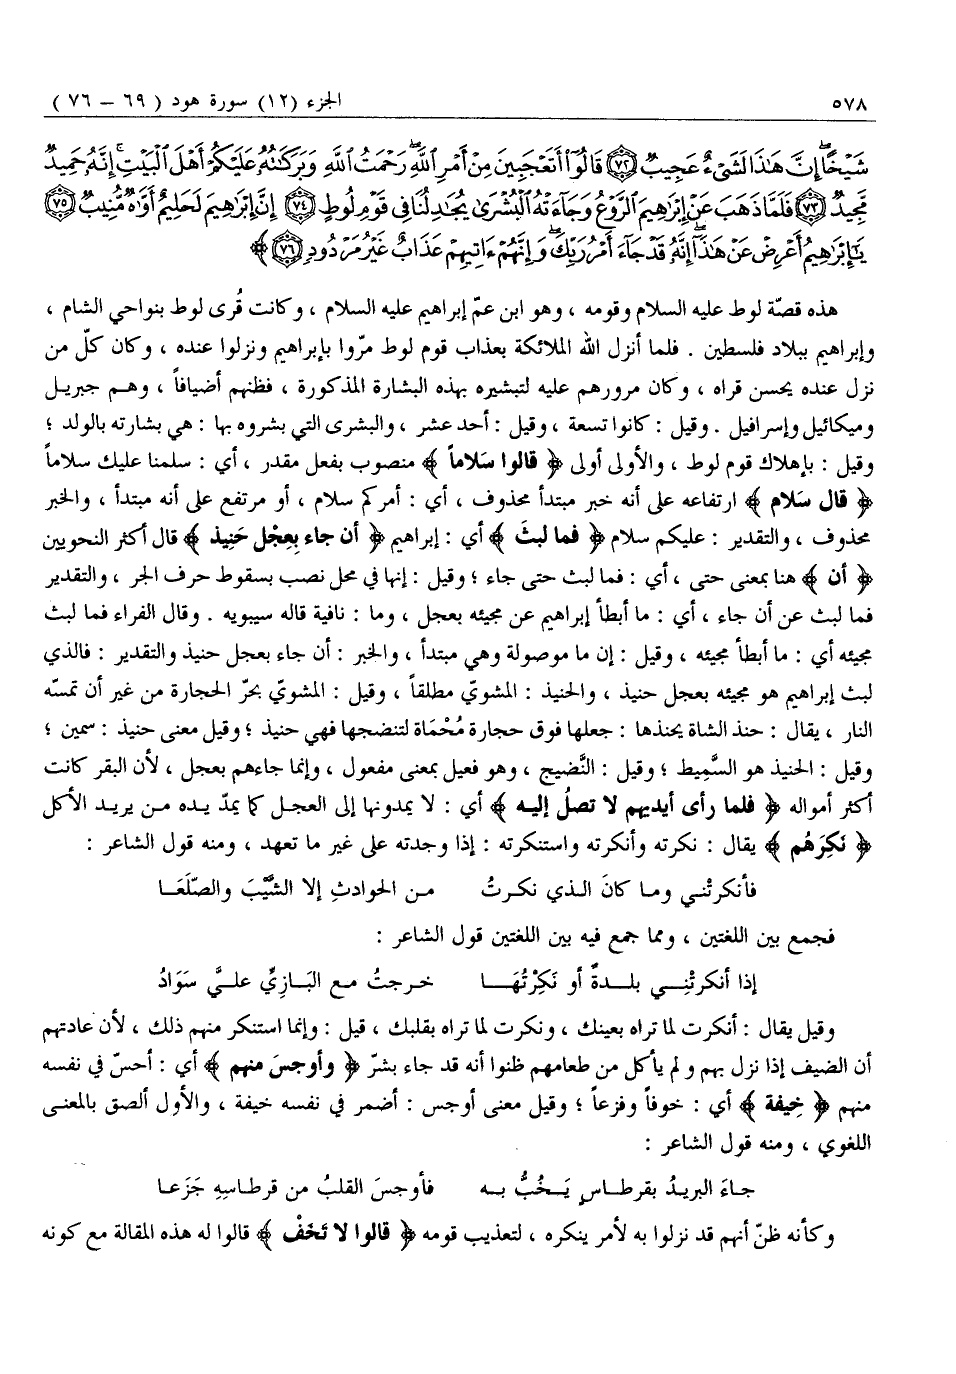 ٥٧٨ الجزء (١٢) سورة هود ( ٦٩ – ٧٦ )
شَيْخًا إِنَّ هَٰذَا لَشَيْءٌ عَجِيبٌ ﴿٧٢﴾ قَالُوٓا۟ أَتَعْجَبِينَ مِنْ أَمْرِ ٱللَّهِ رَحْمَتُ ٱللَّهِ وَبَرَكَٰتُهُۥ عَلَيْكُمْ أَهْلَ ٱلْبَيْتِ إِنَّهُۥ حَمِيدٌ
مَّجِيدٌ ﴿٧٣﴾ فَلَمَّا ذَهَبَ عَنْ إِبْرَٰهِيمَ ٱلرَّوْعُ وَجَآءَتْهُ ٱلْبُشْرَىٰ يُجَٰدِلُنَا فِى قَوْمِ لُوطٍ ﴿٧٤﴾ إِنَّ إِبْرَٰهِيمَ لَحَلِيمٌ أَوَّٰهٌ مُّنِيبٌ ﴿٧٥﴾
يَٰٓإِبْرَٰهِيمُ أَعْرِضْ عَنْ هَٰذَآ إِنَّهُۥ قَدْ جَآءَ أَمْرُ رَبِّكَ وَإِنَّهُمْ ءَاتِيهِمْ عَذَابٌ غَيْرُ مَرْدُودٍ ﴿٧٦﴾ ﴾
هذه قصّة لوط عليه السلام وقومه ، وهو ابن عمّ إبراهيم عليه السلام ، وكانت قُرى لوط بنواحي الشام ،
وإبراهيم ببلاد فلسطين . فلما أنزل الله الملائكة بعذاب قوم لوط مرّوا بإبراهيم ونزلوا عنده ، وكان كلّ من
نزل عنده يحسن قراه ، وكان مرورهم عليه لتبشيره بهذه البشارة المذكورة ، فظنهم أضيافاً ، وهم جبريل
وميكائيل وإسرافيل . وقيل : كانوا تسعة ، وقيل : أحد عشر ، والبشرى التي بشروه بها : هي بشارته بالولد ؛
وقيل : بإهلاك قوم لوط ، والأولى أولى ﴿ قالوا سَلاماً ﴾ منصوب بفعل مقدر ، أي : سلمنا عليك سلاماً
﴿ قال سَلام ﴾ ارتفاعه على أنه خبر مبتدأ محذوف ، أي : أمركم سلام ، أو مرتفع على أنه مبتدأ ، والخبر
محذوف ، والتقدير : عليكم سلام ﴿ فما لبثَ ﴾ أي : إبراهيم ﴿ أن جاء بِعِجْل حَنِيذ ﴾ قال أكثر النحويين
﴿ أن ﴾ هنا بمعنى حتى ، أي : فما لبث حتى جاء ؛ وقيل : إنها في محل نصب بسقوط حرف الجر ، والتقدير
فما لبث عن أن جاء ، أي : ما أبطأ إبراهيم عن مجيئه بعجل ، وما : نافية قاله سيبويه . وقال الفراء فما لبث
مجيئه أي : ما أبطأ مجيئه ، وقيل : إن ما موصولة وهي مبتدأ ، والخبر : أن جاء بعجل حنيذ والتقدير : فالذي
لبث إبراهيم هو مجيئه بعجل حنيذ ، والحنيذ : المشويّ مطلقاً ، وقيل : المشويّ بحرّ الحجارة من غير أن تمسّه
النار ، يقال : حنذ الشاة يحنذها : جعلها فوق حجارة مُحْمَاة لتنضجها فهي حنيذ ؛ وقيل معنى حنيذ : سمين ؛
وقيل : الحنيذ هو السَّمِيط ؛ وقيل : النَّضِيج ، وهو فعيل بمعنى مفعول ، وإنما جاءهم بعجل ، لأن البقر كانت
أكثر أمواله ﴿ فلما رأى أيديهم لا تصلُ إليه ﴾ أي : لا يمدونها إلى العجل كما يمدّ يده من يريد الأكل
﴿ نَكِرَهُم ﴾ يقال : نكرته وأنكرته واستنكرته : إذا وجدته على غير ما تعهد ، ومنه قول الشاعر :
فأنكرتْني وما كانَ الذي نكرتُ من الحوادثِ إلا الشَّيْبَ والصّلَعَا
فجمع بين اللغتين ، ومما جمع فيه بين اللغتين قول الشاعر :
إذا أنكرتْنِي بلدةٌ أو نَكِرْتُهَا خرجتُ مع البَازِيِّ عليَّ سَوَادُ
وقيل يقال : أنكرت لما تراه بعينك ، ونكرت لما تراه بقلبك ، قيل : وإنما استنكر منهم ذلك ، لأن عادتهم
أن الضيف إذا نزل بهم ولم يأكل من طعامهم ظنوا أنه قد جاء بشرّ ﴿ وأوجسَ منهم ﴾ أي : أحسّ في نفسه
منهم ﴿ خِيفة ﴾ أي : خوفاً وفزعاً ؛ وقيل معنى أوجس : أضمر في نفسه خيفة ، والأول ألصق بالمعنى
اللغوي ، ومنه قول الشاعر :
جاءَ البريدُ بقرطاسٍ يَخُبُّ به فأوجسَ القلبُ من قرطاسِهِ جَزَعا
وكأنه ظنّ أنهم قد نزلوا به لأمر ينكره ، لتعذيب قومه ﴿ قالوا لا تَخَفْ ﴾ قالوا له هذه المقالة مع كونه